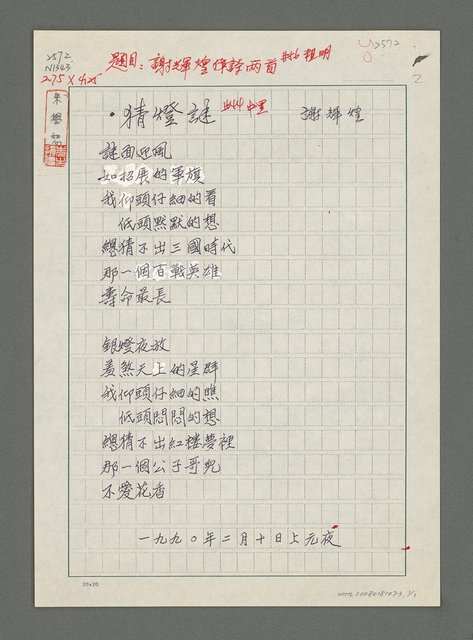 2572
N1343
275 X 425
題目：謝輝煌作詩兩首 #56 粗明
2572
2
朱學恕
•猜燈謎 #44 中黑 謝輝煌
謎面迎風
如招展的軍旗
我仰頭仔細的看
低頭默默的想
總猜不出三國時代
那一個百戰英雄
壽命最長
銀燈夜放
羞煞天上的星群
我仰頭仔細的瞧
低頭悶悶的想
總猜不出紅樓夢裡
那一個公子哥兒
不愛花香
一九九〇年二月十日上元夜
20x20
NMTL20080181073, 1/1